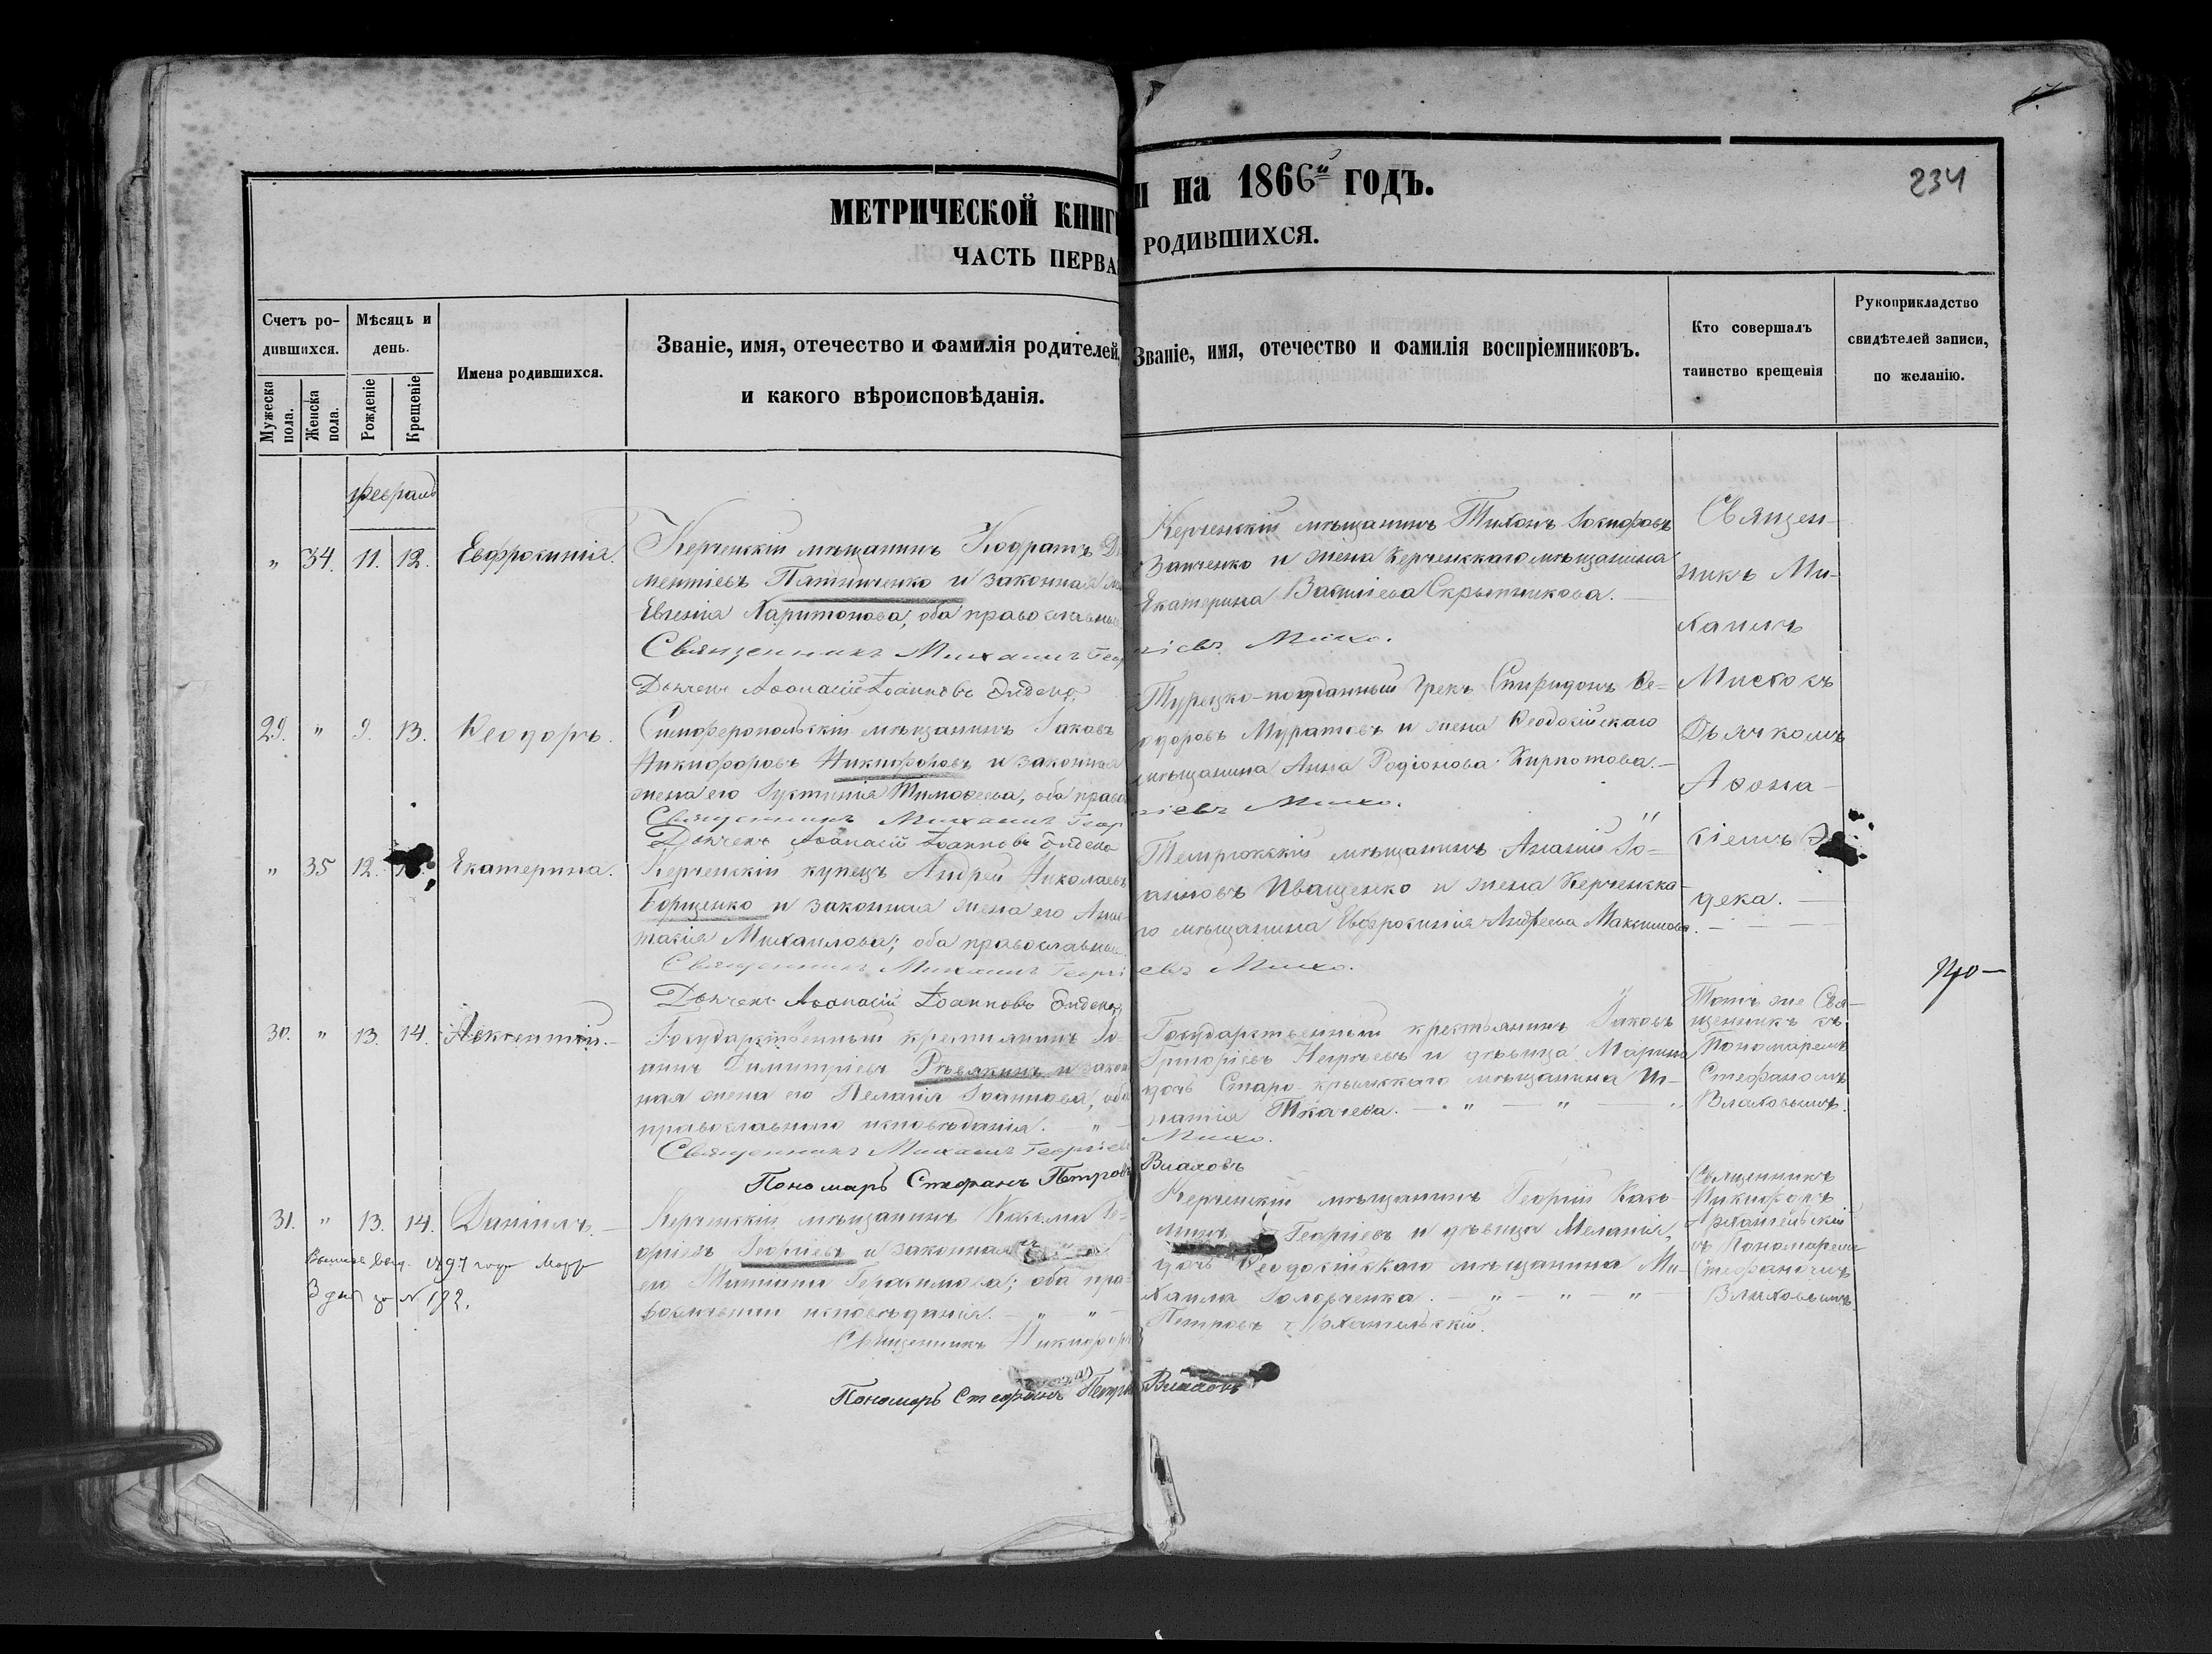 МЕТРИЧЕСКОЙ КНИГИ на 1866й ГОДЪ.
234
ЧАСТЬ ПЕРВА РОДИВШИХСЯ.
Счетъ ро-
дившихся.
Мужеска пола.
Женска пола.
Мѣсяць и
день.
Рожденіе
Крещеніе
Имена родившихся.
Званіе, имя, отечество и фамилія родителей,
и какого вѣроисповѣданія.
Званіе, имя, отечество и фамилія воспріемниковъ.
Кто совершалъ
таинство крещенія
Рукоприкладство
свидѣтелей записи,
по желанію.
февраль
" 34. 11. 12. Евфросинія.
Керченскій мѣщанинъ Кодратъ Де
ментіевъ Пятниченко и законная
Евгенія Харитонова, оба православные
Священникъ Михаилъ Геор
Дьячекъ Аѳанасій Іоанновъ
Керченскій мѣщанинъ Тихонъ
и жена Керченскаго мѣщанина
Екатерина Василіева Скрыпникова.
гіевъ
Священ-
никъ Ми-
хаилъ
съ
Дьячкомъ
Аѳона-
сіемъ
дека.
29. " 9. 13. Ѳеодоръ.
Симферопольскій мѣщанинъ Іаковъ
Никифоровъ Никифоровъ и законная
жена его Іустинія Тимоѳеева, оба право
Священникъ Михаилъ Геор
Дьячекъ Аѳанасій Іоанновъ
Турецко-подданный Грекъ Спиридонъ Ѳе-
одоровъ Муратовъ и жена Ѳеодосійскаго
мѣщанина Анна Родіонова Кирпотова.
гіевъ
" 35 12. Екатерина.
Керченскій купецъ Андрей Николаевъ
Борщенко и законная жена его Анас-
тасія Михаилова; оба православные.
Священникъ Михаилъ Георгі
Дьячекъ Аѳанасій Іоанновъ
Темрюкскій мѣщанинъ Ананій Іо-
анновъ Иващенко и жена Керченска-
го мѣщанина Евфросинія Андреева Максимова.
евъ
Про-
30. " 13. 14. Авксентій.
Государственный крестьянинъ Іо-
аннъ Димитріевъ Рѣвякинъ и закон
ная жена его Пелагія Іоаннова, оба
православнаго исповѣданія. "
Священникъ Михаилъ Георгіевъ
Пономарь Стефанъ Петровъ
Государственный крестьянинъ Іаковъ
Григоріевъ и дѣвица Марина
дочь Старо-крымскаго мѣщанина Иг-
натія Ткачева. " "
Влаховъ
Тотъ же Свя-
щенникъ съ
Пономаремъ
Стефаномъ
Влаховымъ.
31. " 13. 14. Даніилъ.
1897 года
3 дня за № 192.
Керченскій мѣщанинъ Косьма Ге-
оргіевъ Георгіевъ и законная
его Герасимова; оба пра-
вославнаго исповѣданія. " "
Священникъ Никифоръ
Пономарь Стефанъ Петровъ
Керченскій мѣщанинъ Георгій Кось-
минъ Георгіевъ и дѣвица Меланія,
дочь Ѳеодосійскаго мѣщанина Ми-
хаила Головченка. " " "
Петровъ Архангельскій.
Влаховъ
Священникъ
Никифоръ
Архангельскій
съ Пономаремъ
Стефаномъ
Влаховымъ